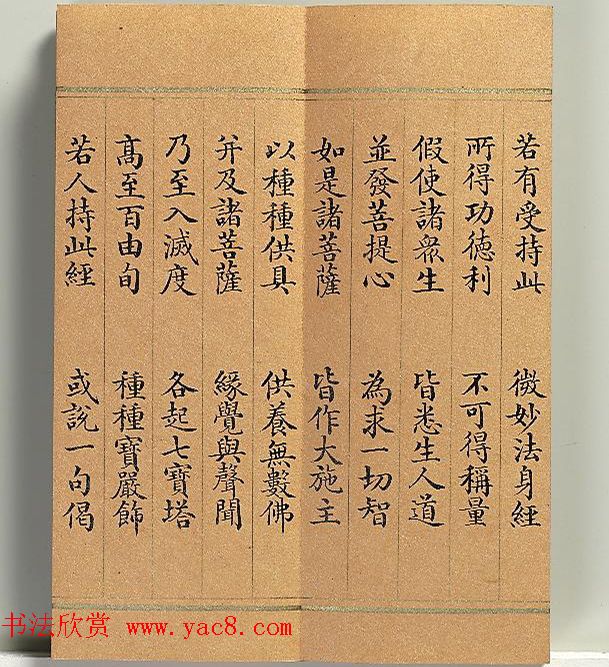 若有受持此 微妙法身經
所得功德利 不可得稱量
假使諸眾生 皆悉生人道
並發菩提心 為求一切智
如是諸菩薩 皆作大施主
以種種供具 供養無數佛
并及諸菩薩 緣覺與聲聞
乃至入滅度 各起七寶塔
高至百由旬 種種寶嚴飾
若人持此經 或說一句偈
书法欣赏 www.yac8.com